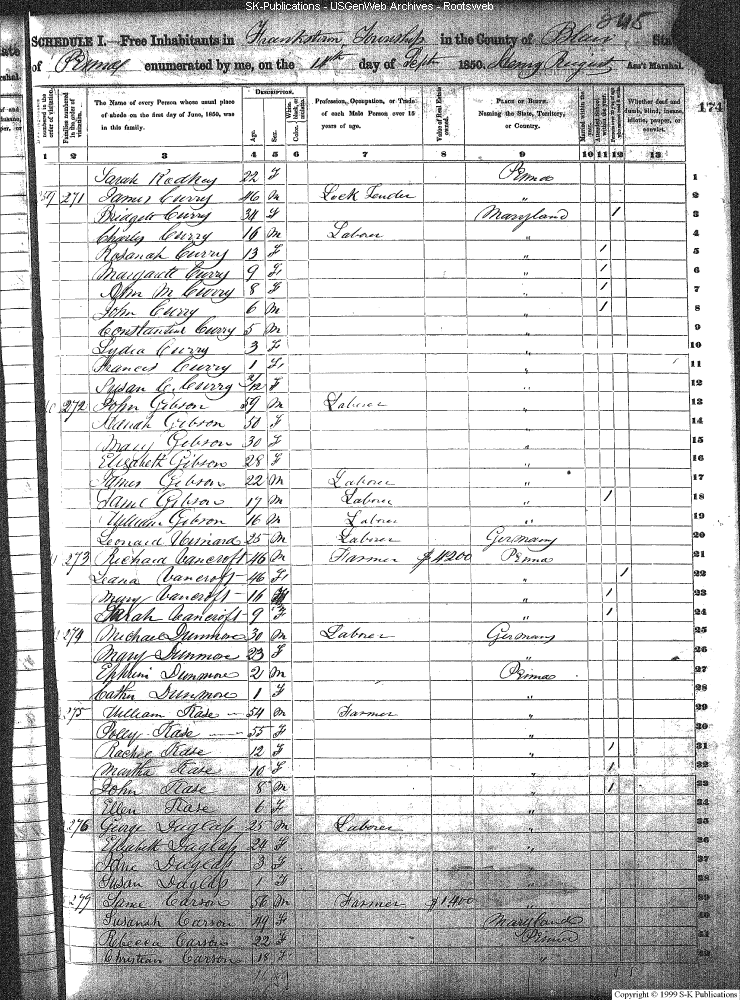 SK-Publications - USGenWeb Archives - Rootsweb
SCHEDULE I.—Free Inhabitants in Frankstown Township in the County of Blair State
of Penna enumerated by me, on the 11th day of Sept 1850. Henry August Ass't Marshal.
174
The Name of every Person whose usual place of abode on the first day of June, 1850, was in this family.
DESCRIPTION.
Age.
Sex.
White, Color, black, or mulatto.
Profession, Occupation, or Trade of each Male Person over 15 years of age.
Value of Real Estate owned.
PLACE OF BIRTH. Naming the State, Territory, or Country.
Married within the year.
Whether deaf and dumb, blind, insane, idiotic, pauper, or convict.
1 2 3 4 5 6 7 8 9 10 11 12 13
Sarah Rodkey 22 F Penna 1
271 James Curry 46 M Lock Tender " 2
Bridget Curry 34 F Maryland / 3
Charles Curry 16 M Laborer " 4
Rosanah Curry 13 F " / 5
Margarett Curry 9 F " / 6
Ann M Curry 8 F " / 7
John Curry 6 M " / 8
Constantine Curry 5 M " 9
Lydia Curry 3 F " 10
Francis Curry 1 F " 11
Susan C. Curry 2/12 F " 12
272 John Gibson 59 M Laborer " 13
Gibson 50 F " 14
Mary Gibson 30 F " 15
Elizabeth Gibson 28 F " 16
James Gibson 22 M Laborer " 17
Saml Gibson 17 M Laborer " / 18
William Gibson 16 M Laborer " 19
Leonard 25 M Laborer Germany 20
273 Richard Vancroft 46 M Farmer $4200 Penna 21
Leana Vancroft 46 F " / 22
Mary Vancroft 16 F " / 23
Sarah Vancroft 9 F " / 24
274 Michael Dunmore 30 M Laborer Germany 25
Mary Dunmore 23 F " 26
Ephrim Dunmore 2 M Penna 27
Cathn Dunmore 1 F " 28
275 William Kase 54 M Farmer " 29
Polly Kase 55 F " 30
Rachel Kase 12 F " / 31
Martha Kase 10 F " / 32
John Kase 8 M " / 33
Ellen Kase 6 F " 34
276 George Daglass 25 M Laborer " 35
Elizabeth Daglass 24 F " 36
Jane Daglass 3 F " 37
Susan Daglass 1 F " 38
279 Jame Carson 56 M Farmer $1400 " 39
Susanah Carson 49 F Maryland 40
Rebecca Carson 22 F Penna 41
Christian Carson 18 F " 42
Copyright © 1999 S-K Publications